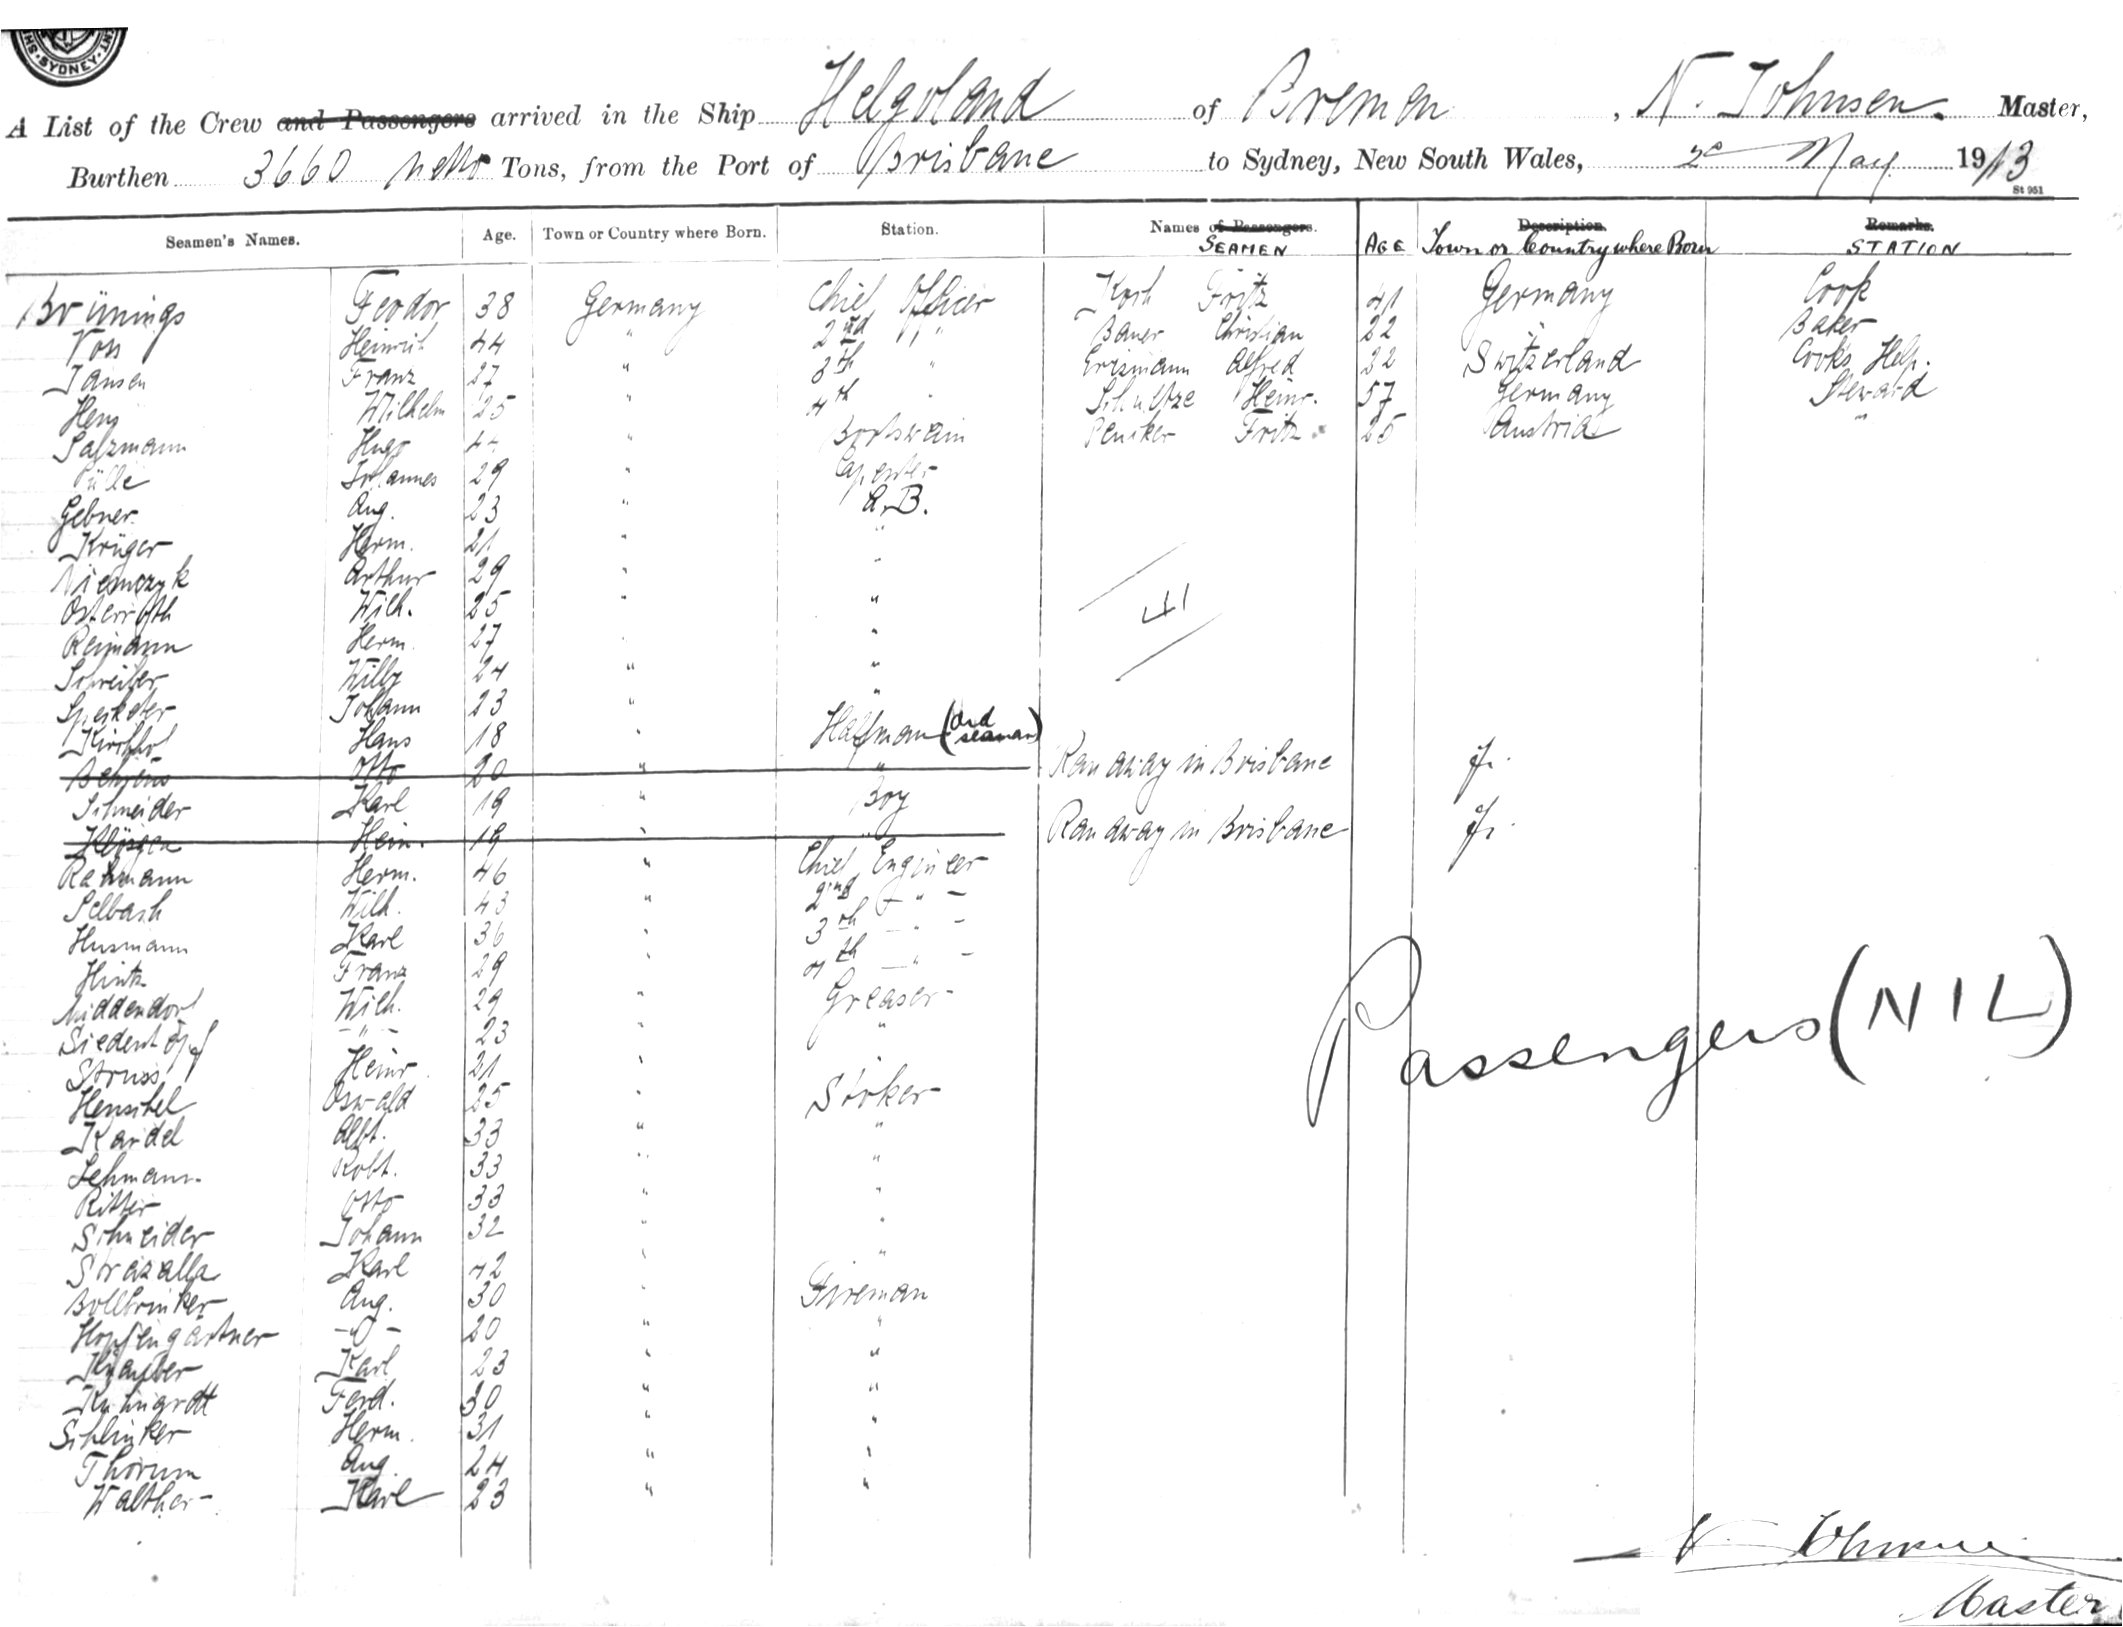 SYDNEY
A List of the Crew and Passengers arrived in the Ship Helgoland of Bremen, N. Johnsen. Master,
Burthen 3660 netto Tons, from the Port of Brisbane to Sydney, New South Wales, 2d May 1913
St 951
Seamen's Names. Age. Town or Country where Born. Station. Names of Passengers. SEAMEN AGE Description. Town or Country where Born Remarks. STATION
Brünings Feodor 38 Germany Chief Officer Koch Fritz 41 Germany Cook
Voss Heinrich 44 " 2nd " Bauer Christian 22 " Baker
Jansen Franz 27 " 3th " Erismann Alfred 22 Switzerland Cook's Help.
Wilhelm 25 " 4th " Schultze Heinr. 57 Germany Steward
Salzmann Hugo 44 " Bootswain Fritz 25 Austria "
Johannes 29 " Capenter
Gebner Aug. 23 " A.B.
Krüger Herm. 21 " "
Niemczyk Arthur 29 " "
Osterroth Wilh. 25 " "
Reimann Herm. 27 " "
Schreiber Willy 24 " "
Johann 23 " "
Kirchhof Hans 18 " Halfman (ord seaman)
Behrens Otto 20 " " Ran away in Brisbane
Schneider Karl 19 " Boy
Hein. 19 " " Ran away in Brisbane
Herm. 46 " Chief Engineer
Selbach Wilh. 43 " 2nd - " -
Husmann Karl 36 " 3th - " -
Hintz Franz 29 " 4th - " -
Middendorf Wilh. 29 " Greaser
Siedentopf - " - 23 " "
Struss Heinr. 21 " "
Henschel Oswald 25 " Stoker
Kardel Albt. 33 " "
Lehmann Robt. 33 " "
Ritter Otto 33 " "
Schneider Johann 32 " "
Karl 42 " "
Bollbrinker Aug. 30 " Fireman
Hopfengärtner - " - 20 " "
Karl 23 " "
Ferd. 30 " "
Schlinker Herm. 31 " "
Thorum Aug. 24 " "
Walther Karl 23 " "
Passengers (NIL)
N. Johnsen
Master